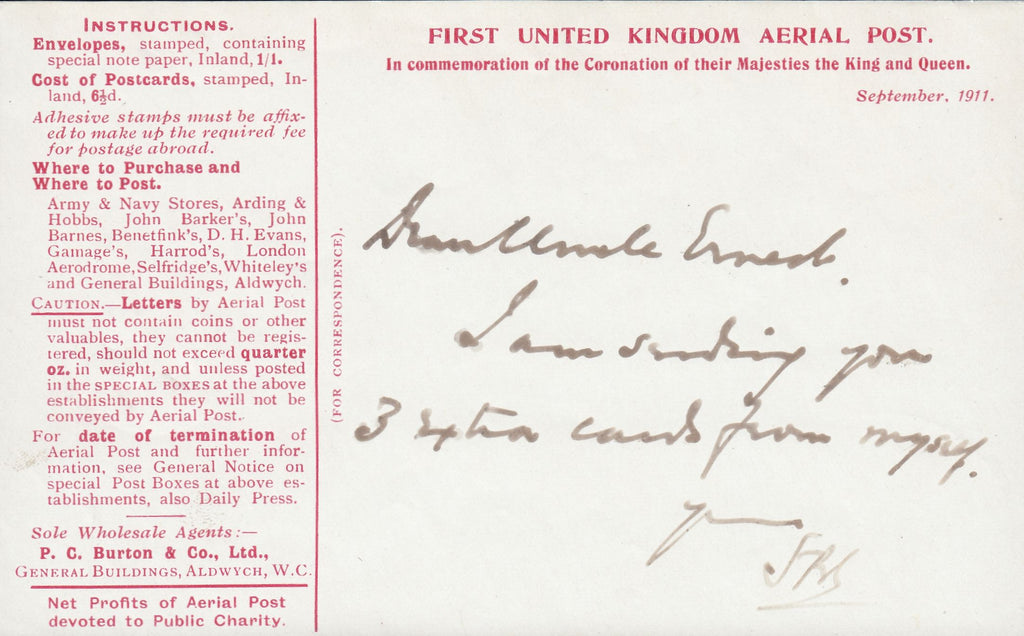 INSTRUCTIONS.
Envelopes, stamped, containing
special note paper, Inland, 1/1.
Cost of Postcards, stamped, In-
land, 6½d.
Adhesive stamps must be affix-
ed to make up the required fee
for postage abroad.
Where to Purchase and
Where to Post.
Army & Navy Stores, Arding &
Hobbs, John Barker's, John
Barnes, Benetfink's, D. H. Evans,
Gamage's, Harrod's, London
Aerodrome, Selfridge's, Whiteley's
and General Buildings, Aldwych.
CAUTION.—Letters by Aerial Post
must not contain coins or other
valuables, they cannot be regis-
tered, should not exceed quarter
oz. in weight, and unless posted
in the SPECIAL BOXES at the above
establishments they will not be
conveyed by Aerial Post.
For date of termination of
Aerial Post and further infor-
mation, see General Notice on
special Post Boxes at above es-
tablishments, also Daily Press.
Sole Wholesale Agents:—
P. C. Burton & Co., Ltd.,
GENERAL BUILDINGS, ALDWYCH, W.C.
Net Profits of Aerial Post
devoted to Public Charity.
(FOR CORRESPONDENCE).
FIRST UNITED KINGDOM AERIAL POST.
In commemoration of the Coronation of their Majesties the King and Queen.
September, 1911.
Dear Uncle Ernest.
I am sending you
3 extra cards from myself.